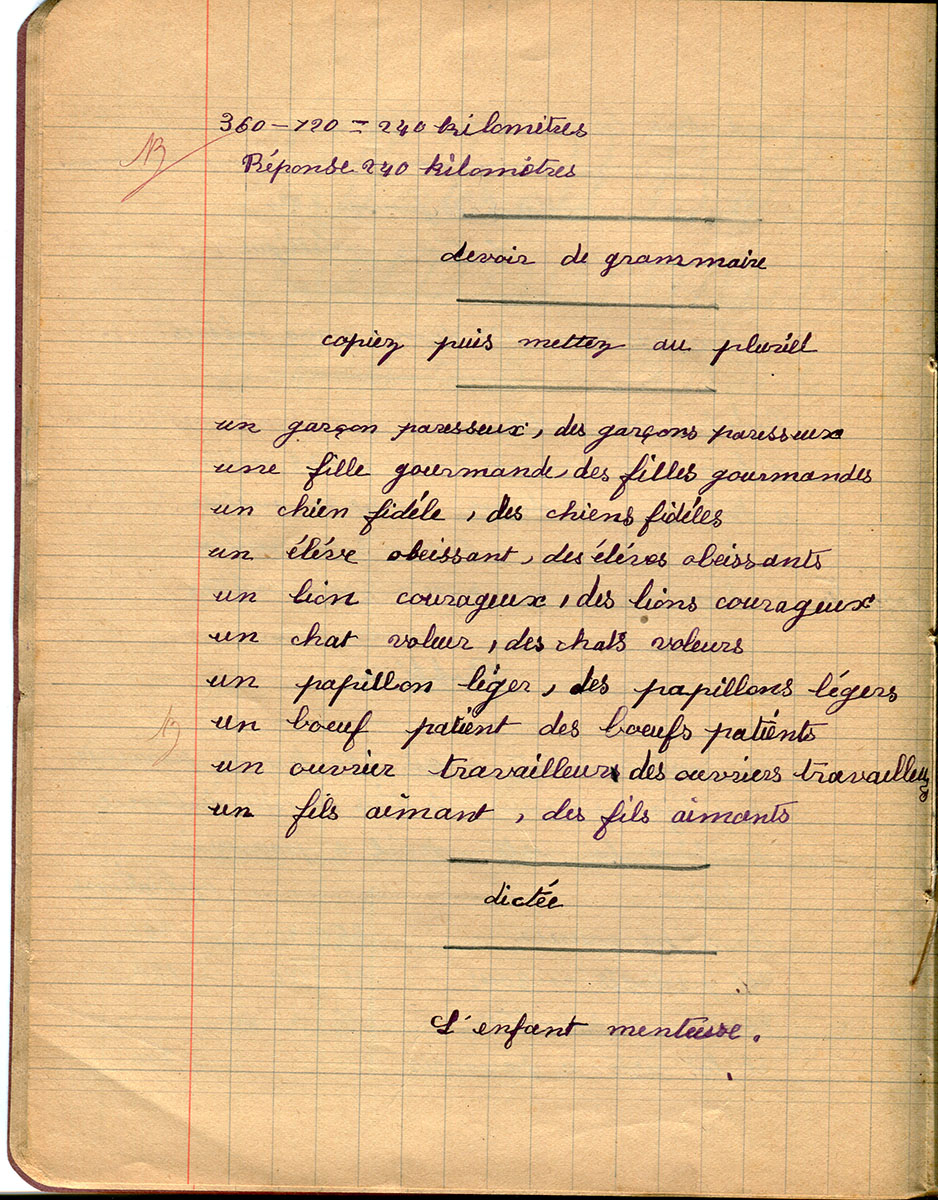 360 - 120 = 240 kilomètres
Réponse 240 kilomètres
devoir de grammaire
copiez puis mettez au pluriel
un garçon paresseux, des garçons paresseux
une fille gourmande, des filles gourmandes
un chien fidéle, des chiens fidéles
un éléve obeissant, des éléves obeissants
un lion courageux, des lions courageux
un chat voleur, des chats voleurs
un papillon léger, des papillons légers
un boeuf patient des boeufs patients
un ouvrier travailleur, des ouvriers travailleurs
un fils aimant, des fils aimants
dictée
L'enfant menteuse.